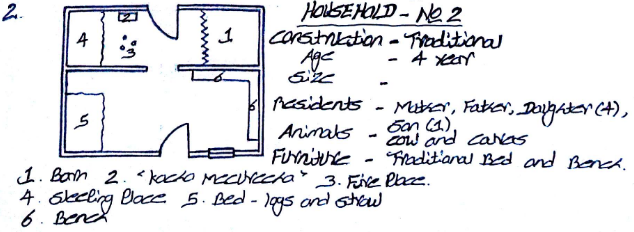 2.
HOUSEHOLD - No 2
Construction - Traditional
Age - 4 year
Size -
Residents - Mother, Father, Daughter (4), Son (1)
Animals - cow and calves
Furniture - Traditional Bed and Bench.
2
4
3
1
6
6
5
1. Barn 2. "Kacko 3. Fire Place.
4. Sleeping Place 5. Bed - logs and straw
6. Bench